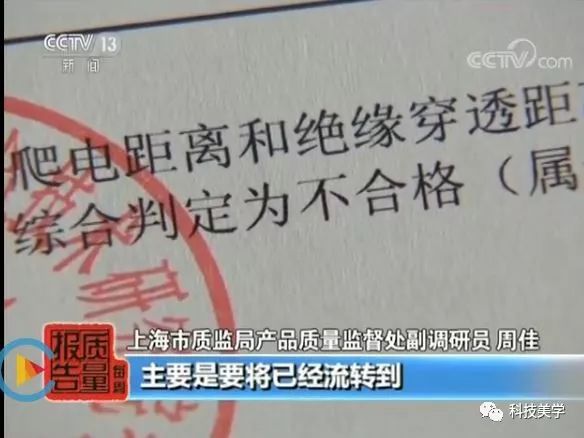 CCTV 13
新闻
CCTV.com
爬电距离和绝缘穿透距
综合判定为不合格（属
上海市质监局产品质量监督处副调研员 周佳
质量报告
每周
主要是要将已经流转到
科技美学